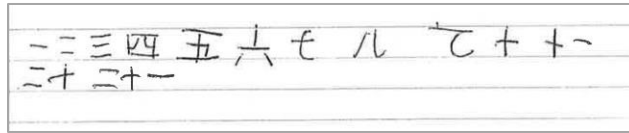 一 二 三 四 五 六 七 八 十 十一
二十 二十一